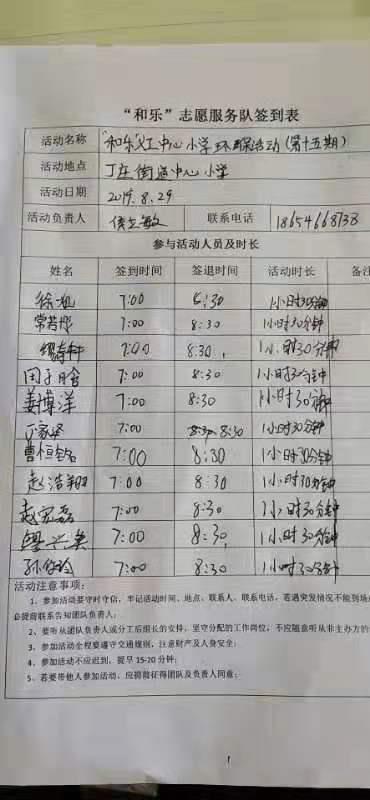 “和乐”志愿服务队签到表
活动名称 “和乐”丁庄中心小学环保活动（第十五期）
活动地点 丁庄街道中心小学
活动日期 2019.8.29
活动负责人 敏 联系电话 18654668738
参与活动人员及时长
姓名 签到时间 签退时间 活动时长 备注
徐 7:00 8:30 1小时30分钟
常若彤 7:00 8:30 1小时30分钟
7:00 8:30 1小时30分钟
田子晗 7:00 8:30 1小时30分钟
姜博洋 7:00 8:30 1小时30分钟
丁家 7:00 8:30 8:30 1小时30分钟
曹恒铭 7:00 8:30 1小时30分钟
赵浩翔 7:00 8:30 1小时30分钟
赵宏磊 7:00 8:30 1小时30分钟
7:00 8:30 1小时30分钟
孙 7:00 8:30 1小时30分钟
活动注意事项：
1、参加活动要守时守信，牢记活动时间、地点、联系人、联系电话，若遇突发情况不能到场
必提前联系告知团队负责人；
2、要听从团队负责人或分工后组长的安排，坚守分配的工作岗位，不应随意听从非主办方的
3、参加活动全程要遵守交通规则，注意财产及人身安全；
4、参加活动不应迟到，提早 15-20 分钟；
5、若要带他人参加活动，应提前征得团队及负责人同意；
1